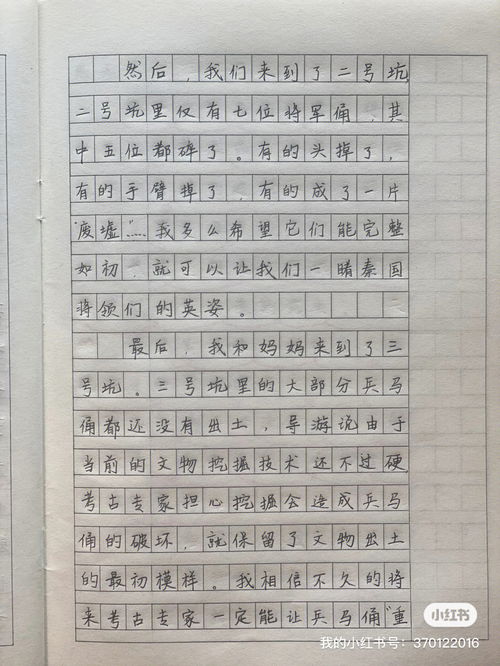 然后，我们来到了二号坑，
二号坑里仅有七位将军俑，其
中五位都碎了。有的头掉了，
有的手臂掉了，有的成了一片
“废墟”……我多么希望它们能完整
如初，就可以让我们一睹秦国
将领们的英姿。
最后，我和妈妈来到了三
号坑。三号坑里的大部分兵马
俑都还没有出土，导游说由于
当前的文物挖掘技术还不过硬，
考古专家担心挖掘会造成兵马
俑的破坏，就保留了文物出土
的最初模样。我相信不久的将
来考古专家一定能让兵马俑“重
小红书
我的小红书号：370122016